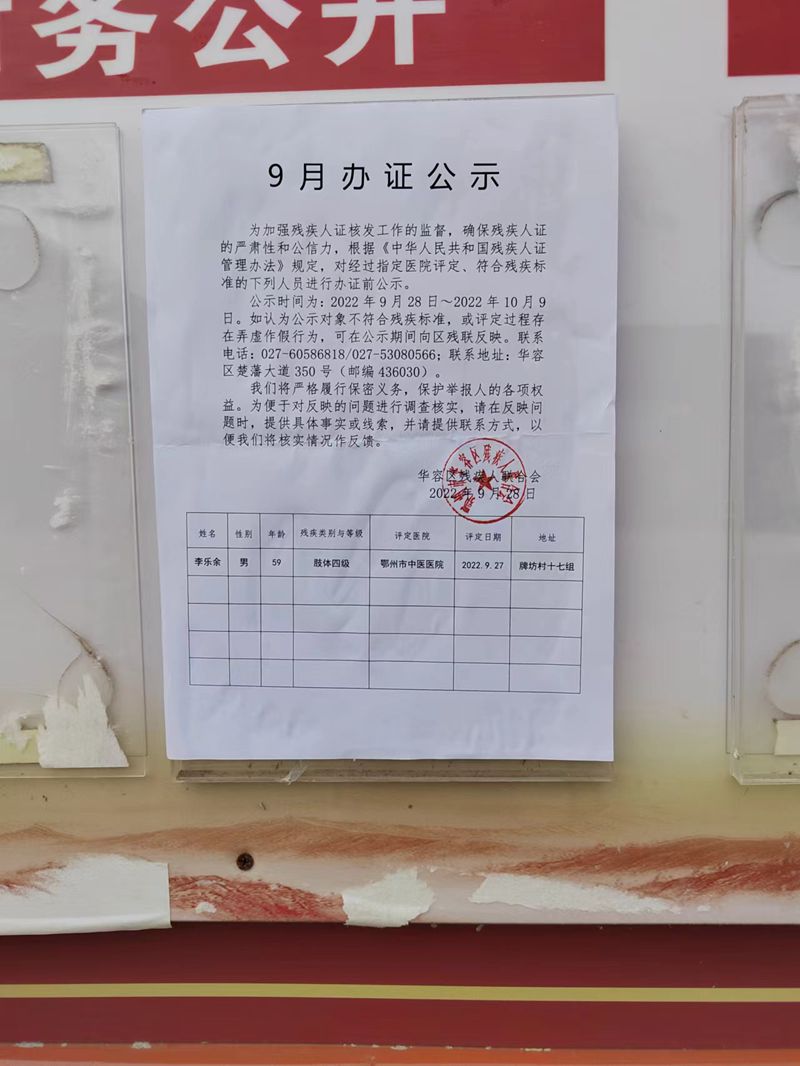 务公开
9月办证公示
为加强残疾人证核发工作的监督，确保残疾人证
的严肃性和公信力，根据《中华人民共和国残疾人证
管理办法》规定，对经过指定医院评定、符合残疾标
准的下列人员进行办证前公示。
公示时间为：2022年9月28日～2022年10月9
日。如认为公示对象不符合残疾标准，或评定过程存
在弄虚作假行为，可在公示期间向区残联反映。联系
电话：027-60586818/027-53080566；联系地址：华容
区楚藩大道350号（邮编436030）。
我们将严格履行保密义务，保护举报人的各项权
益。为便于对反映的问题进行调查核实，请在反映问
题时，提供具体事实或线索，并请提供联系方式，以
便我们将核实情况作反馈。
华容区残疾人联合会
2022年9月28日
姓名 性别 年龄 残疾类别与等级 评定医院 评定日期 地址
李乐余 男 59 肢体四级 鄂州市中医医院 2022.9.27 牌坊村十七组